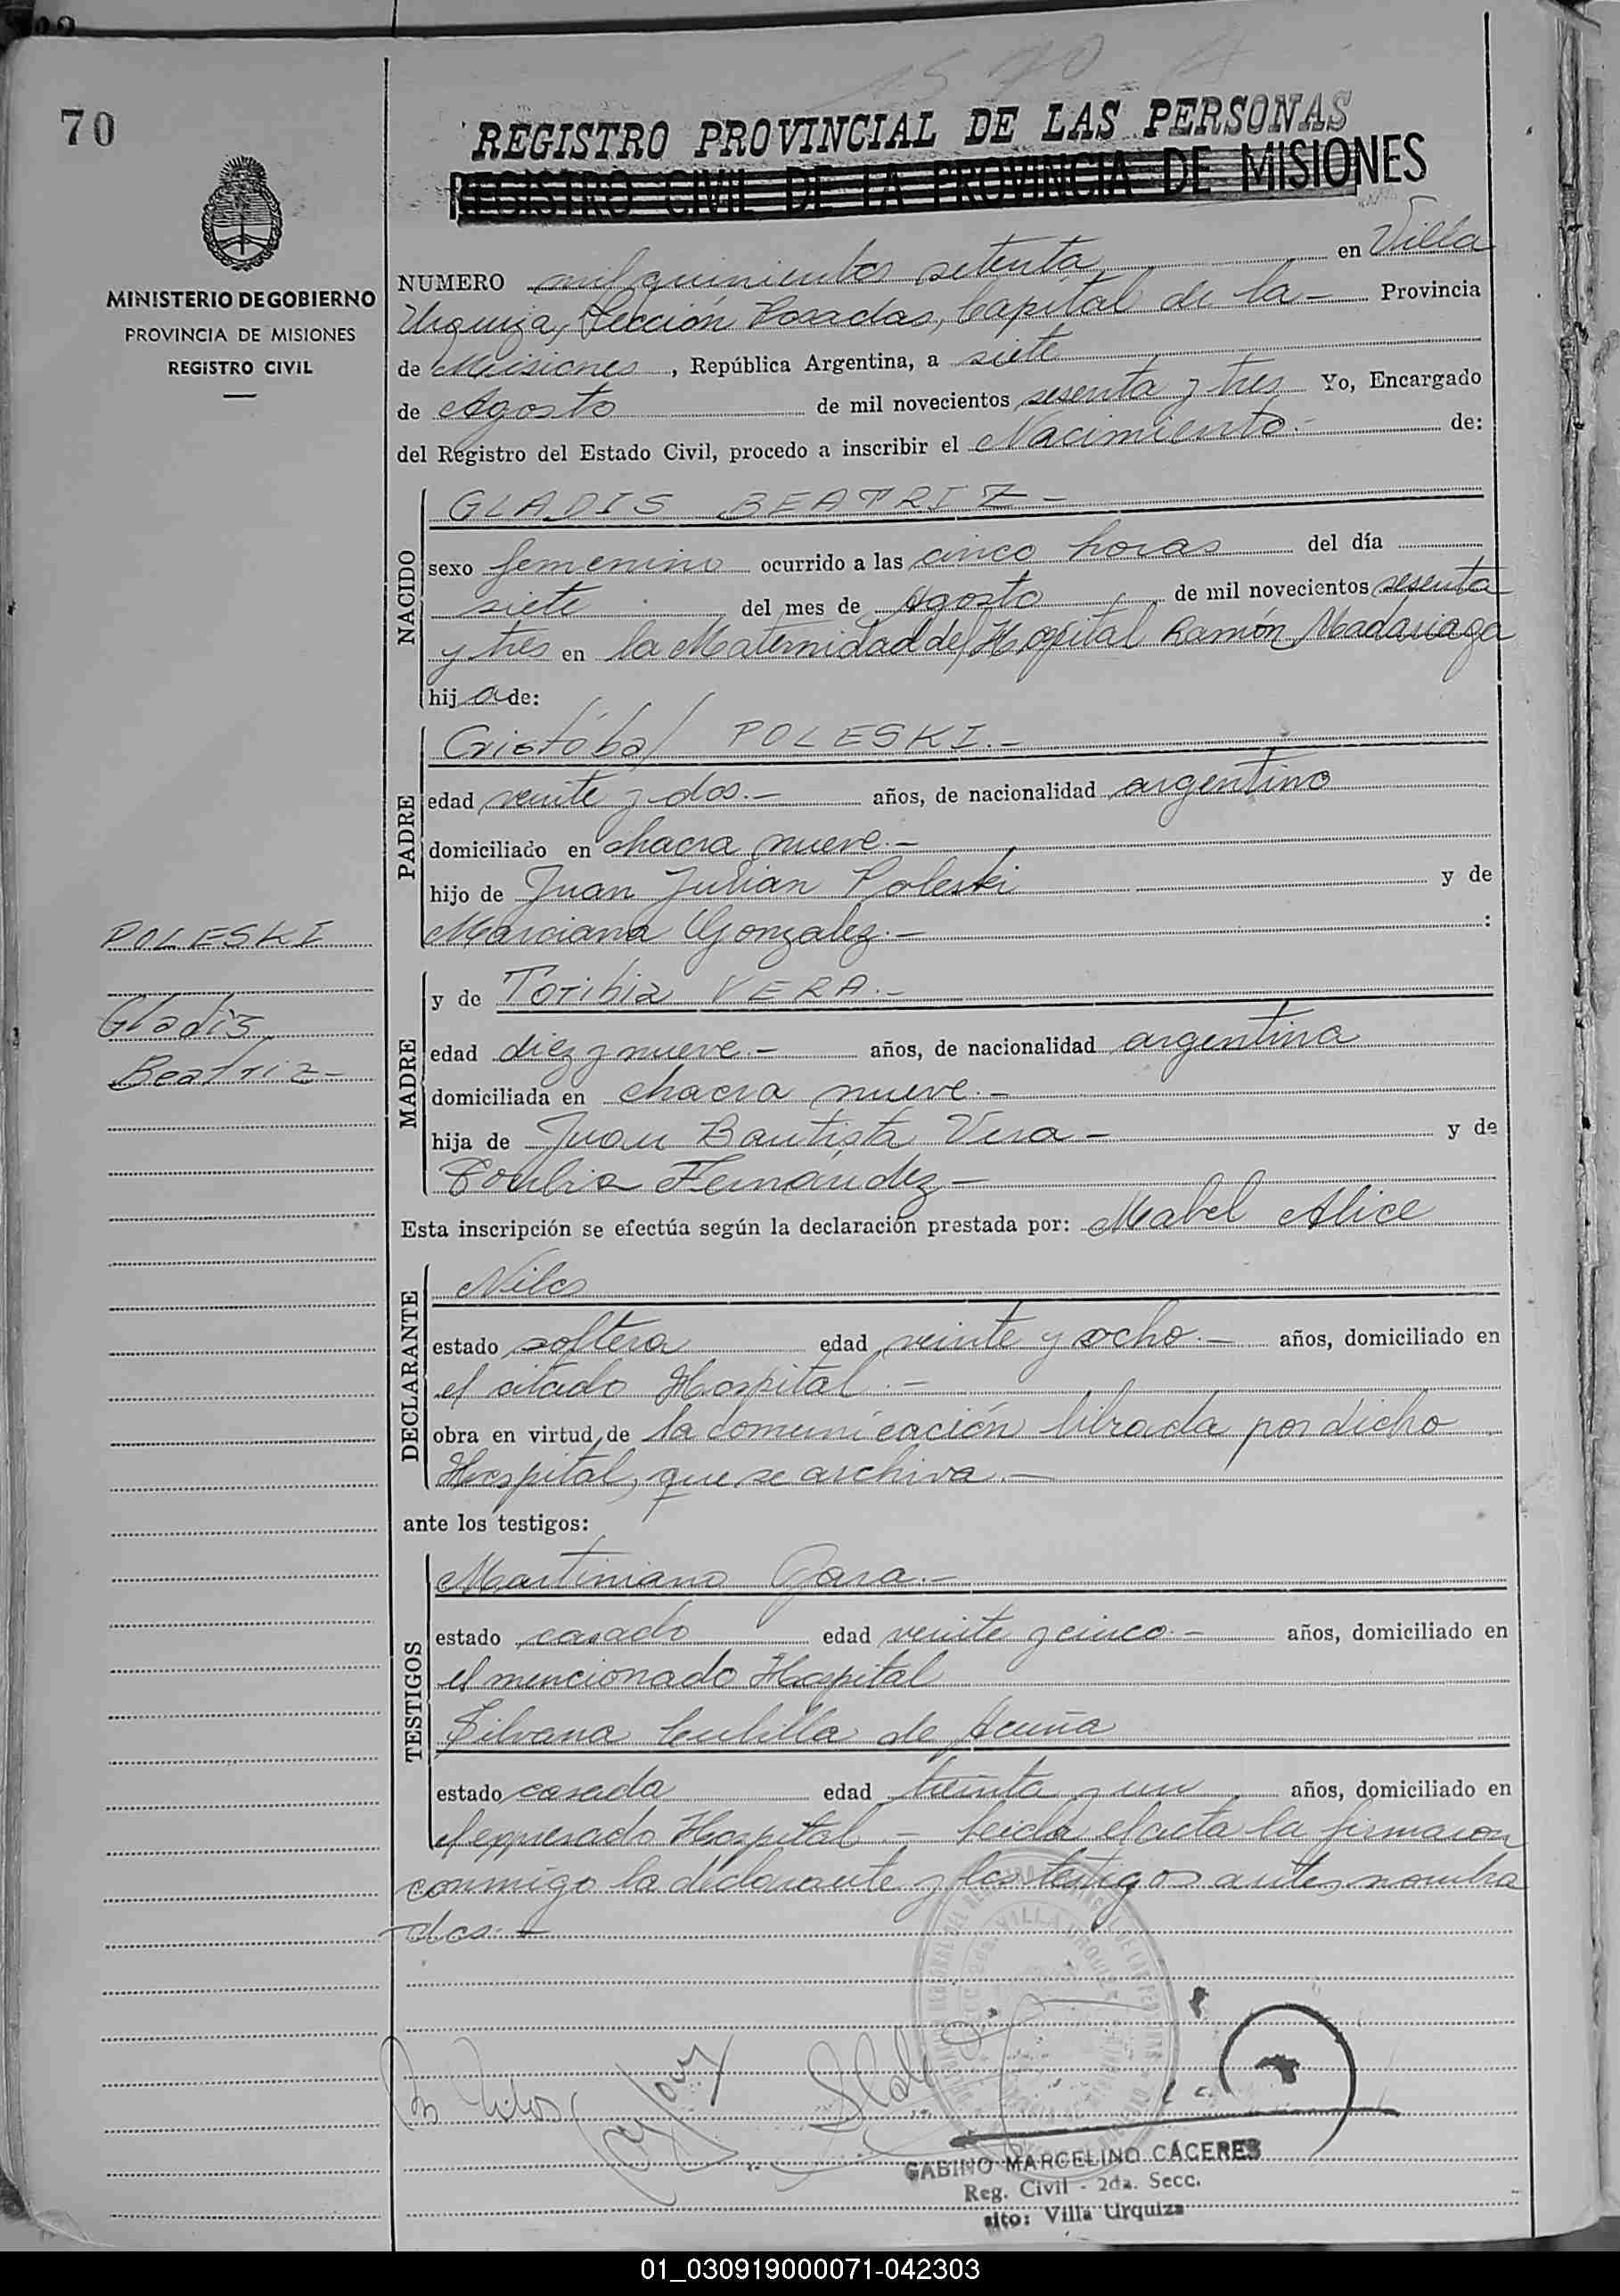 70
1570
REGISTRO PROVINCIAL DE LAS PERSONAS
REGISTRO CIVIL DE LA PROVINCIA DE MISIONES
MINISTERIO DE GOBIERNO
PROVINCIA DE MISIONES
REGISTRO CIVIL
NUMERO mil quinientos setenta en Villa
Urquiza, Sección Posadas, Capital de la - Provincia
de Misiones, República Argentina, a siete
de Agosto de mil novecientos sesenta y tres Yo, Encargado
del Registro del Estado Civil, procedo a inscribir el Nacimiento.- de:
NACIDO
GLADIS BEATRIZ -
sexo femenino ocurrido a las cinco horas del día
siete del mes de Agosto de mil novecientos sesenta
y tres en la Maternidad del Hospital Ramón Madariaga
hija de:
PADRE
Cristóbal POLESKI.-
edad veinte y dos.- años, de nacionalidad argentino
domiciliado en chacra nueve.-
hijo de Juan Julian Poleski y de
Marciana Gonzalez.- :
POLESKI
Gladis
Beatriz-
MADRE
y de Toribia VERA.-
edad diez y nueve.- años, de nacionalidad argentina
domiciliada en chacra nueve.-
hija de Juan Bautista Vera - y de
Toribia Fernández -
Esta inscripción se efectúa según la declaración prestada por: Mabel Alice
DECLARANTE
Nilos
estado soltera edad veinte y ocho.- años, domiciliado en
el citado Hospital.-
obra en virtud de la comunicación librada por dicho
Hospital, que se archiva.-
ante los testigos:
TESTIGOS
Martiniano Jara.-
estado casado edad veinte y cinco.- años, domiciliado en
el mencionado Hospital
Silvana de Acuña
estado casada edad treinta y un años, domiciliado en
el expresado Hospital.- Leida el acta la firmaron
conmigo la declarante y los testigos antes nombra
dos.-
GABINO MARCELINO CÁCERES
Reg. Civil - 2da. Secc.
sito: Villa Urquiza
01_030919000071-042303